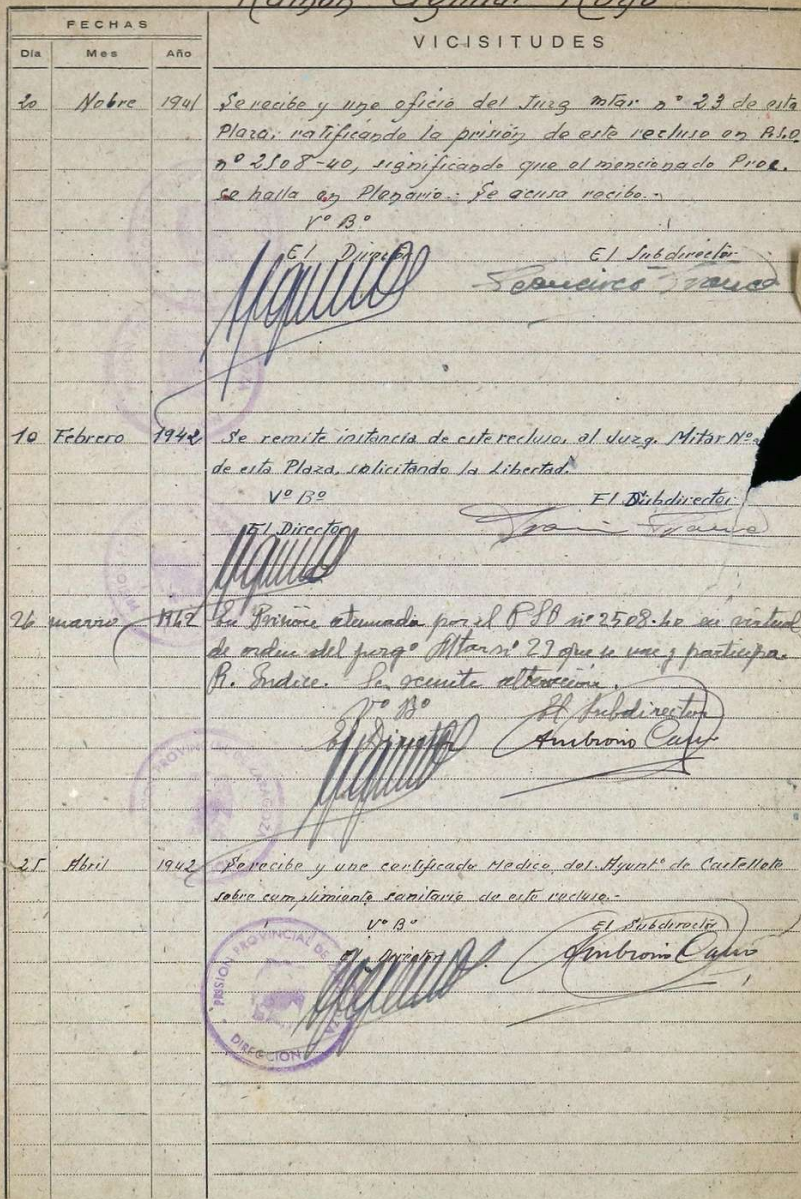 Ramón Aguilar Royo
FECHAS
VICISITUDES
Día Mes Año
20 Nobre 1941 Se recibe y une oficio del Juzg mtar nº 23 de esta
Plaza, ratificando la prisión de este recluso en P.S.O.
nº 2508-40, significando que el mencionado Proc.
se halla en Plenario.- Se acusa recibo.-
Vº Bº
El Director El Subdirector
Francisco
10 Febrero 1942 Se remite instancia de este recluso, al Juzg. Mitar Nº
de esta Plaza, solicitando la Libertad.
Vº Bº El Subdirector
El Director
26 marzo 1942 En Prisión atenuada por el PSO nº 2508-40 en virtud
de orden del juzgº Mtar nº 23 que se une y participa
R. Indice. Se remite alteración.
Vº Bº El Subdirector
El Director Ambrosio
25 Abril 1942 Se recibe y une certificado Medico del Ayuntº de Castellote
sobre cumplimiento sanitario de este recluso.-
Vº Bº El Subdirector
El Director Ambrosio
PRISION PROVINCIAL DE ZARAGOZA
DIRECCION